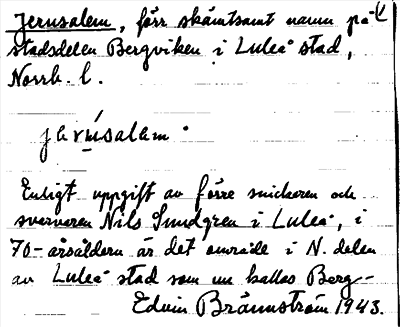 Jerusalem, förr skämtsamt namn på
stadsdelen Bergviken i Luleå stad,
Norrb. l.
jerúsalem.
Enligt uppgift av förre snickeren och
svarvaren Nils Sundgren i Luleå, i
70-årsåldern är det område i N. delen
av Luleå stad som nu kallas Berg-
Edvin Brännström 1943.